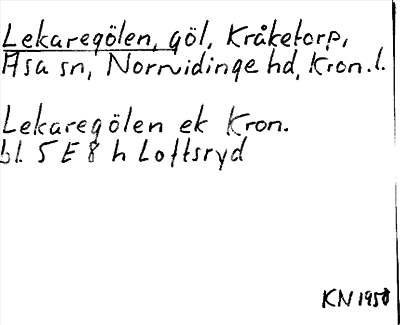 Lekaregölen, göl, Kråketorp,
Asa sn, Norrvidinge hd, Kron. l.
Lekaregölen ek Kron.
bl. 5 E 8 h Loftsryd
KN 1958